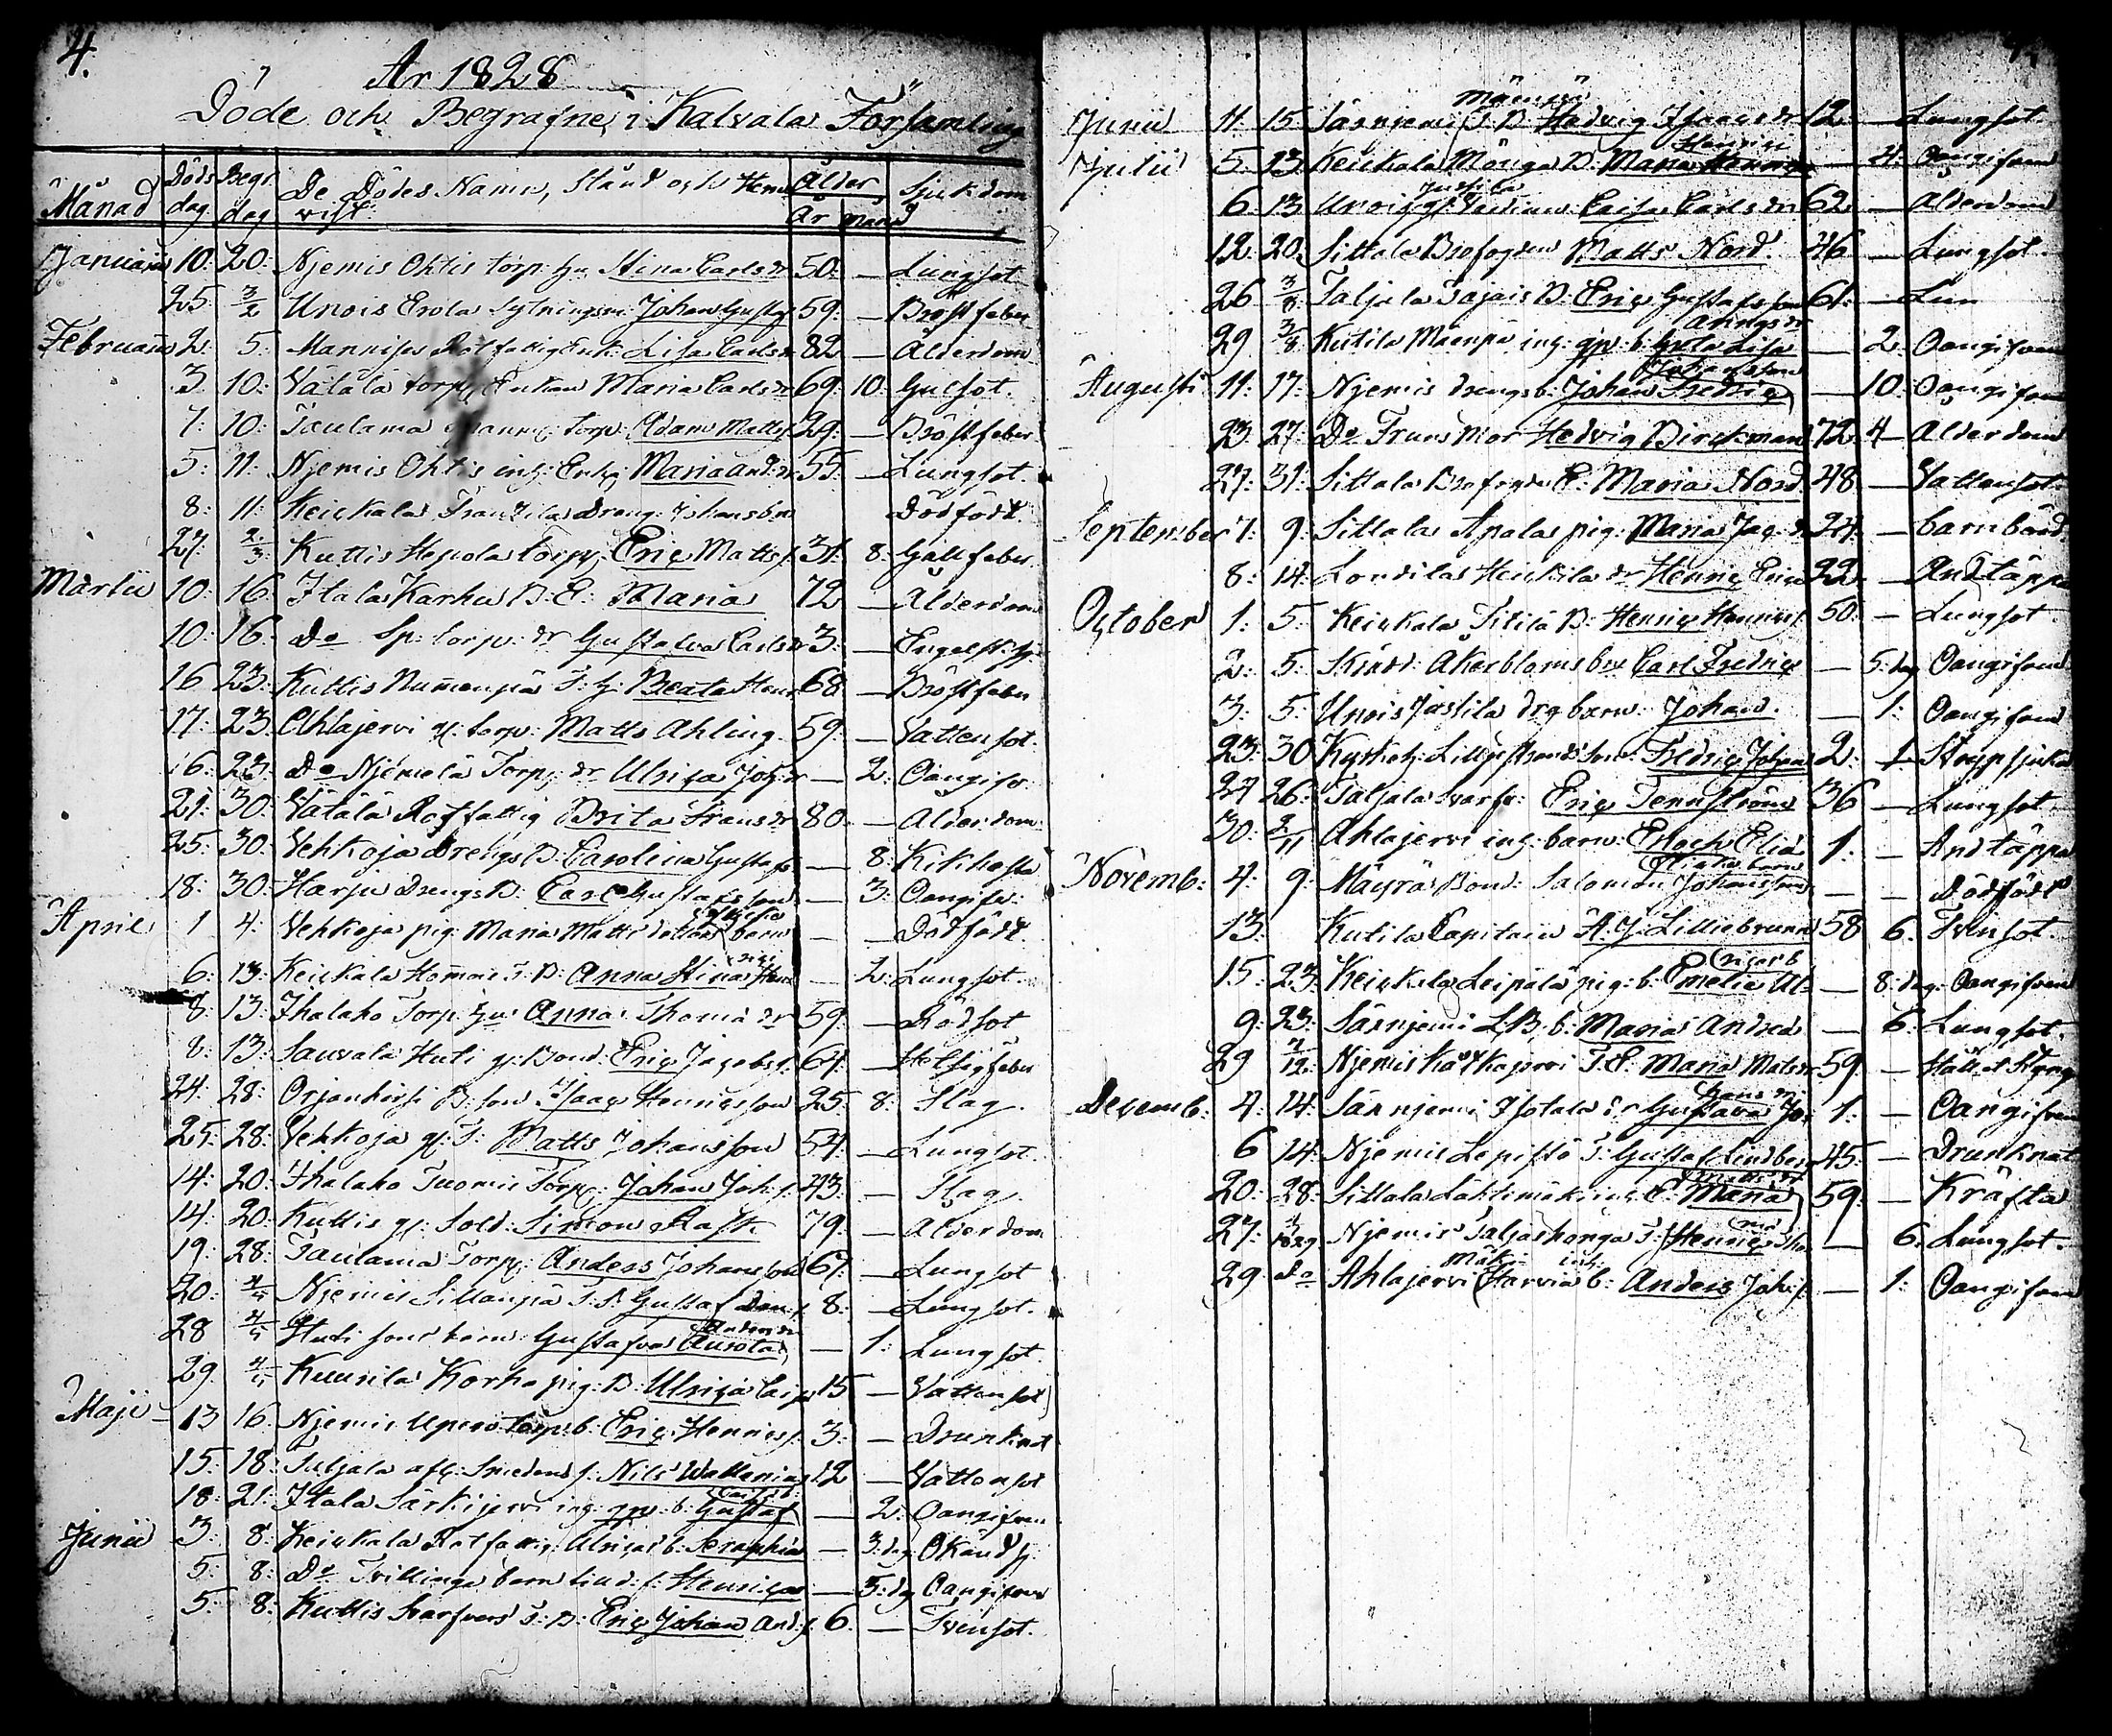 4.
År 1828
Döde och Begrafne i Kalvala Församling
Månad Döds dag Begr. dag De Dödes Namn, Stånd och Hemvist Ålder År Månad Sjukdom
Januarii 10: 20: Njemis Ohtis torp: hu Stina Carlsdr 50: — Lungsot
25 3/2 Unois Erola Sytningsm: Johan Gustafs 59: — Bröstfeber
Februarii 2: 5: Mannises Rotfattig Enk: Lisa Carlsdr 82 — Ålderdom
3: 10: Vätälä torp Enkan Maria Carlsdr 69: 10: Gulsot.
7: 10: Taulama torp: Adam Matts 29: — Bröstfeber
5: 11: Njemis Ohtis inh: Enk: Maria And:dr 55: — Lungsot.
8: 11: Keickala Franzila Dreng: Johans bn Dödfödt.
27: 2/3 Kuttis Hepola torp: Eric Matts s. 31: 8: Gallfeber
Martii 10: 16 Itala Karhu B: E: Maria 72 — Ålderdom
10: 16. Do Sp: torp: dr Gustafva Carlsdr 3: — Engelsk: sj:
16 23: Kuttis Nummenpä T: h: Beata Henr 68 — Bröstfeber
17: 23 Ahlajervi gl: torp: Matts Ahling 59: — Vattensot.
16: 23: Do Njemelä Torp: dr Ulrica Joh:dr — 2: Oangifv:
21: 30: Vätälä Rotfattig Brita Fransdr 80. — Ålderdom
25: 30: Vehkoja Drengs B: Carolina Gustafs — 8: Kikhosta
18: 30: Harju Drengs B: Carl Gustafsson — 3: Oangifv:
April 1 4: Vehkoja pig: Maria Mattsdotters barn — — Dödfödt.
6: 13: Keickala Homais T: B: Anna Stina — 2: Lungsot.
8: 13: Ihalaho Torp: hu: Anna Thoma dr 59: — Rödsot
8: 13: Sauvala Huti gl: Bond: Eric Jacobs s. 64: — Hetsigfeber
24: 28: Orjanhirsi B: son Isaac Henricsson 25: 8: Slag.
25: 28: Vehkoja gl: T: Matts Johansson 54: — Lungsot.
14: 20: Ihalaho Tuomis Torp: Johan Joh: s. 43: — Slag
14: 20: Kuttis gl: Sold: Simon Rask 79: — Ålderdom
19: 28: Taulama Torp: Anders Johansson 67: — Lungsot
20: 4/5 Njemis Sillanpä T: S: Gustaf 8: — Lungsot.
28 4/5 Huti sons barn: Gustafva Aurora Andersdr — 1: Lungsot.
29 4/5 Kuurila Korho pig: B: Ulrica 15 — Vattensot
Maji 13 16. Njemis torp: b: Eric Henrics s. 3: — Drunknat
15: 18: Taljala afl: Smedens s: Nils Wallenius 12 — Vattensot
18: 21: Itala Särkijervi inh: b: Gustaf — 2: Oangifven
Junii 3: 8: Keickala Rotfattig: Ulricas b: Seraphia — 3: dag Okänd sj:
5: 8: Do Tvillinge barn Henrica — 5: dg Oangifven
5: 8: Kuttis Svarfvars T: B: Eric Johan And: s. 6. — Tvinsot.
Junii 11. 15. Särnjemi Mäenpä T: B: Hedvig Isaacsdr 12: — Lungsot
Julii 5: 13: Keickala Mänga B: Maria Henrics — 4: Oangifven
6. 13 Unois Jussila Caisa Carlsdr 62 — Ålderdom
12 20. Sittala Brofogden Matts Nord. 46 — Lungsot.
26 3/8 Taljala Tajais B: Eric Gustafsson 61: —
29 3/8 Kutila Mäenpä inh: b: Gustava Lisa — 2. Oangifven
Augusti 11: 17: Njemis drengs b: Johan Fredric Johansson — 10: Oangifven
23. 27: Do Frans Mor Hedvig Birckman 72. 4 — Ålderdom
27: 31: Sittala Brofogden E: Maria Nord 48 — Vattensot.
September 7: 9: Sittala Apala pig: Maria Jac: dr 24: — barnbörd
8: 14. Londila Heickila dr Henric Erics 22. — Andtäppa
October 1: 5: Keickala Titilä B: Henric Henrics s. 50: — Lungsot
2: 5: Skrädd: Åkerbloms bn Carl Fredric — 5: dag Oangifven
3: 5: Unois Justila drg barn: Johan. — 1: Oangifven
23: 30 Lilljestrands son: Fredric Johan 2: 1 Strypsjuka
27 26: Taljala Svarfv: Eric Tennström 36 — Lungsot
30: 2/11 Ahlajervi inh: barn: Enoch Eliæ 1: — Andtäppa
Novemb: 4: 9: Mäyrä Bond: Salomon Johanssons barn — — Dödfödt
13: Kutila Capitain A. J. Lilliebrunn 58 6. Tvinsot.
15: 23: Keickala Leipälä pig: b: Emelia Ul= ricas b — 8: dag: Oangifven
9: 23: Särnjemi L.B: b: Maria Andersdr — 6: Lungsot.
29 7/12 Njemis Kalkajervi T: E: Maria Matsdr 59: — Håll et Styng
Decemb: 4: 14: Särnjemi Isotala dr Gustava Jo= hansdr 1: — Oangifven
6 14: Njemis Lepistö T: Gustaf Lindberg 45: — Drunknat
20: 28: Sittala Lähtimäki inh: E: Maria 59: — Kräfta
27: 1/1829 Njemis Taljas konga T: s Henric — 6. Lungsot.
29 Do Ahlajervi Mäki Harvia inh b: Anders Joh: s. — 1: Oangifven